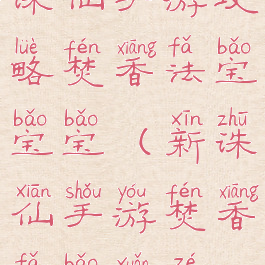 诛仙手游攻
lüè fén xiāng fǎ bǎo
略焚香法宝
bǎo bǎo xīn zhū
宝宝（新诛
xiān shǒu yóu fén xiāng
仙手游焚香
fǎ bǎo xuǎn zé